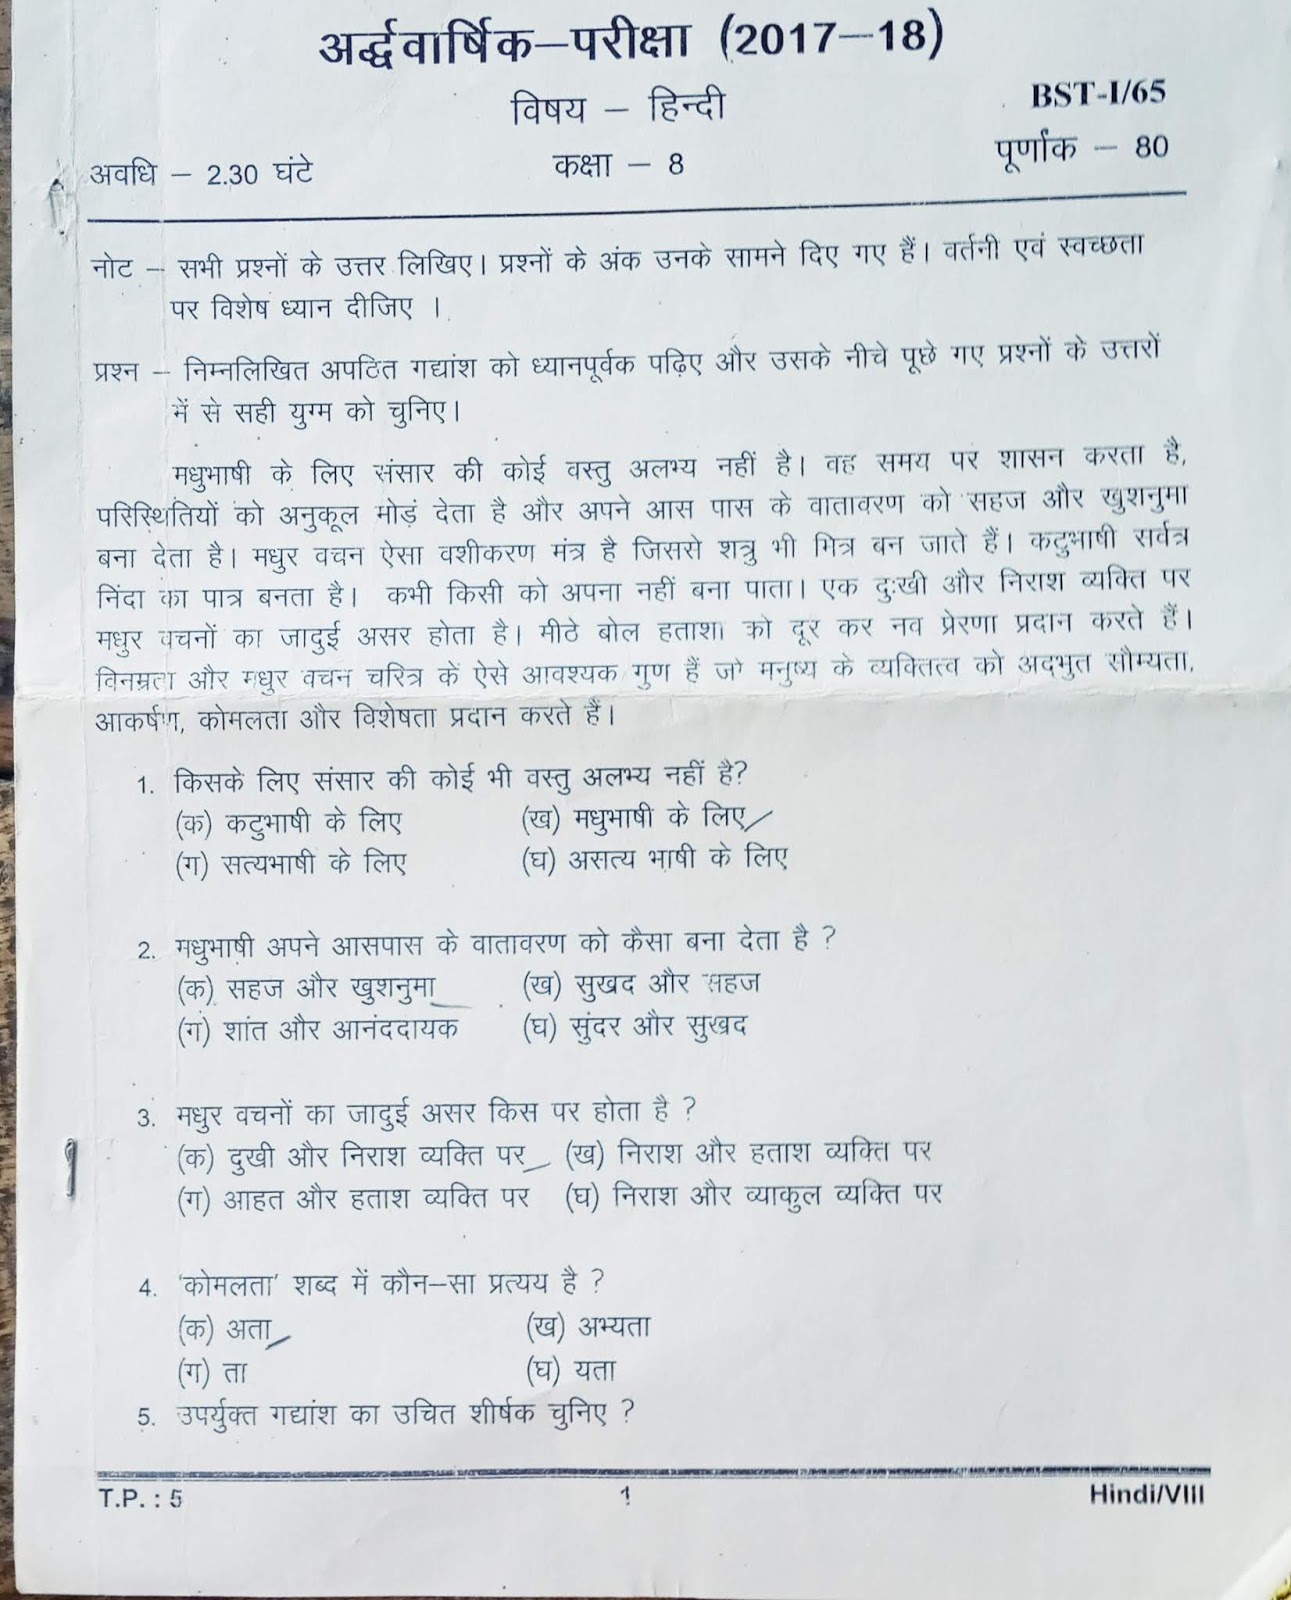 अर्द्धवार्षिक–परीक्षा (2017–18)
विषय – हिन्दी
BST-I/65
अवधि – 2.30 घंटे
कक्षा – 8
पूर्णांक – 80
नोट – सभी प्रश्नों के उत्तर लिखिए। प्रश्नों के अंक उनके सामने दिए गए हैं। वर्तनी एवं स्वच्छता
पर विशेष ध्यान दीजिए ।
प्रश्न – निम्नलिखित अपठित गद्यांश को ध्यानपूर्वक पढ़िए और उसके नीचे पूछे गए प्रश्नों के उत्तरों
में से सही युग्म को चुनिए।
मधुभाषी के लिए संसार की कोई वस्तु अलभ्य नहीं है। वह समय पर शासन करता है,
परिस्थितियों को अनुकूल मोड़ देता है और अपने आस पास के वातावरण को सहज और खुशनुमा
बना देता है। मधुर वचन ऐसा वशीकरण मंत्र है जिससे शत्रु भी मित्र बन जाते हैं। कटुभाषी सर्वत्र
निंदा का पात्र बनता है। कभी किसी को अपना नहीं बना पाता। एक दुःखी और निराश व्यक्ति पर
मधुर वचनों का जादुई असर होता है। मीठे बोल हताशा को दूर कर नव प्रेरणा प्रदान करते हैं।
विनम्रता और मधुर वचन चरित्र के ऐसे आवश्यक गुण हैं जो मनुष्य के व्यक्तित्व को अद्भुत सौम्यता,
आकर्षण, कोमलता और विशेषता प्रदान करते हैं।
1. किसके लिए संसार की कोई भी वस्तु अलभ्य नहीं है?
(क) कटुभाषी के लिए (ख) मधुभाषी के लिए
(ग) सत्यभाषी के लिए (घ) असत्य भाषी के लिए
2. मधुभाषी अपने आसपास के वातावरण को कैसा बना देता है ?
(क) सहज और खुशनुमा (ख) सुखद और सहज
(ग) शांत और आनंददायक (घ) सुंदर और सुखद
3. मधुर वचनों का जादुई असर किस पर होता है ?
(क) दुखी और निराश व्यक्ति पर (ख) निराश और हताश व्यक्ति पर
(ग) आहत और हताश व्यक्ति पर (घ) निराश और व्याकुल व्यक्ति पर
4. 'कोमलता' शब्द में कौन–सा प्रत्यय है ?
(क) अता (ख) अभ्यता
(ग) ता (घ) यता
5. उपर्युक्त गद्यांश का उचित शीर्षक चुनिए ?
T.P. : 5 1 Hindi/VIII